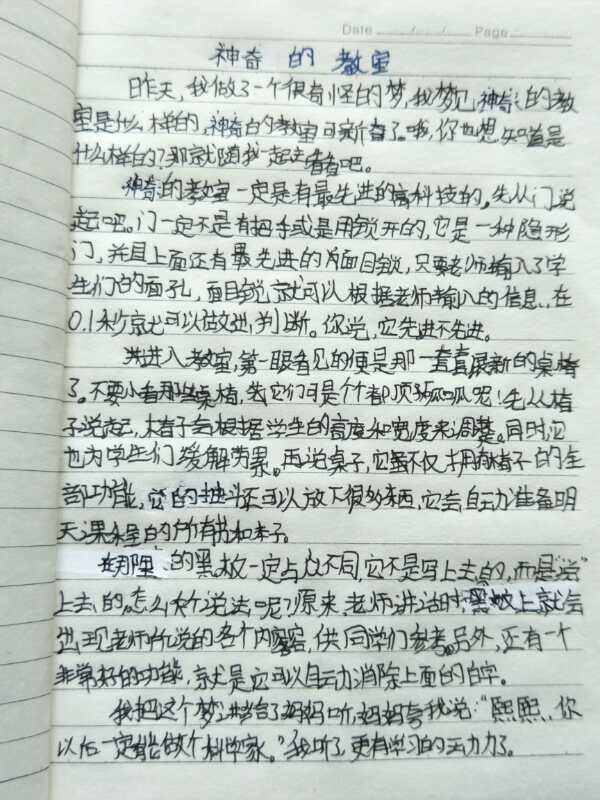 Date / / Page
神奇的教室
昨天,我做了一个很奇怪的梦,我梦见神奇的教
室是什么样的,神奇的教室可新奇了。哦,你也想知道是
什么样的?那就随我一起去看看吧。
神奇的教室一定是有最先进的高科技的,先从门说
起吧。门一定不是有把手或是用锁开的,它是一种隐形
门,并且上面还有最先进的面目锁,只要老师输入了学
生们的面孔,面目锁就可以根据老师输入的信息,在
0.1秒就可以做出判断。你说,它先进不先进。
进入教室,第一眼看见的便是那一套套最新的桌椅
了。不要小看那些桌椅,它们可是个个都顶呱呱呢!先从椅
子说起,椅子会根据学生的高度和宽度来调整。同时它
也为学生们缓解劳累。再说桌子,它不仅拥有椅子的全
部功能,它的抽斗还可以放下很多东西,它会自动准备明
天课程的所有书和本子。
在那里的黑板一定与众不同,它不是写上去的,而是“说”
上去的,怎么个说法呢?原来,老师讲话时,黑板上就会
出现老师所说的各个内容,供同学们参考。另外,还有一个
非常好的功能,就是它可以自动消除上面的白字。
我把这个梦讲给了妈妈听,妈妈夸我说:“熙熙,你
以后一定能做个科学家。”我听了,更有学习的动力了。